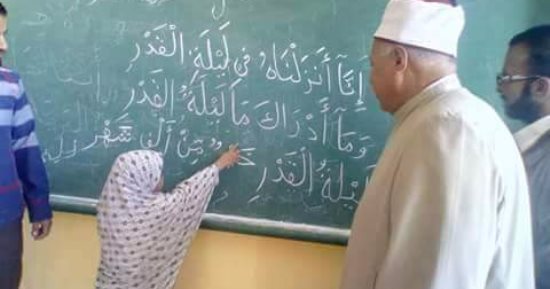 إِنَّآ أَنزَلْنَاهُ فِى لَيْلَةِ الْقَدْرِ
وَمَآ أَدْرَاكَ مَا لَيْلَةُ الْقَدْرِ
لَيْلَةُ الْقَدْرِ مِنْ أَلْفِ شَهْرٍ